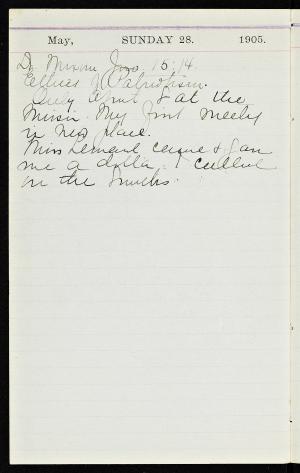 May, SUNDAY 28. 1905.
Dr Mixom Jno. 15:14
Ethics of Patriotism.
Only about 8 at the
Mission. My first meeting
in new place.
Miss Leonard came & gave
me a dollar. I called
on the Smiths.